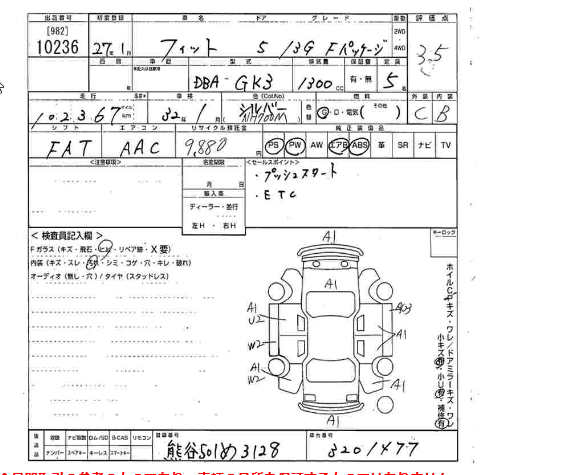 出品番号 初度登録 車名 ドア グレード 車歴 評価点
[982]
10236 27年1月 フィット 5 13G Fパッケージ 2WD・4WD 3.5
車歴 型式 排気量 保証書 定員
DBA-GK3 1300cc 有・無 5名
走行 車検 色(ColNo) 燃料 外装 内装
10.2.367km 32年1月 シルバー NH700M 色替 G・D・電気(その他) C B
シフト エアコン リサイクル預託金 純正装備品
FAT AAC 9,880円 PS PW AW エアB ABS 革 SR ナビ TV
<注意事項> 名変期限 <セールスポイント>
月 日
・プッシュスタート
輸入車
・ETC
ディーラー・並行
左H・右H
<検査員記入欄> キーロック
Fガラス(キズ・飛石・ヒビ・リペア跡・X要)
内装(キズ・スレ・汚れ・シミ・コゲ・穴・キレ・破れ)
オーディオ(無し・穴)/タイヤ(スタッドレス)
A1
A1
A1 U2
A03
W2
A1
A1 W2
A1
A1
ホイルCキズ・ワレ/ドアミラーキズ・ワレ
小キズ有・小U有・補修有
後送品 取説 ナビ取説 ロム/SD B-CAS リモコン 登録番号 車台番号
ナンバー スペアキー キーレス スマートキー 熊谷501め3128 3201477